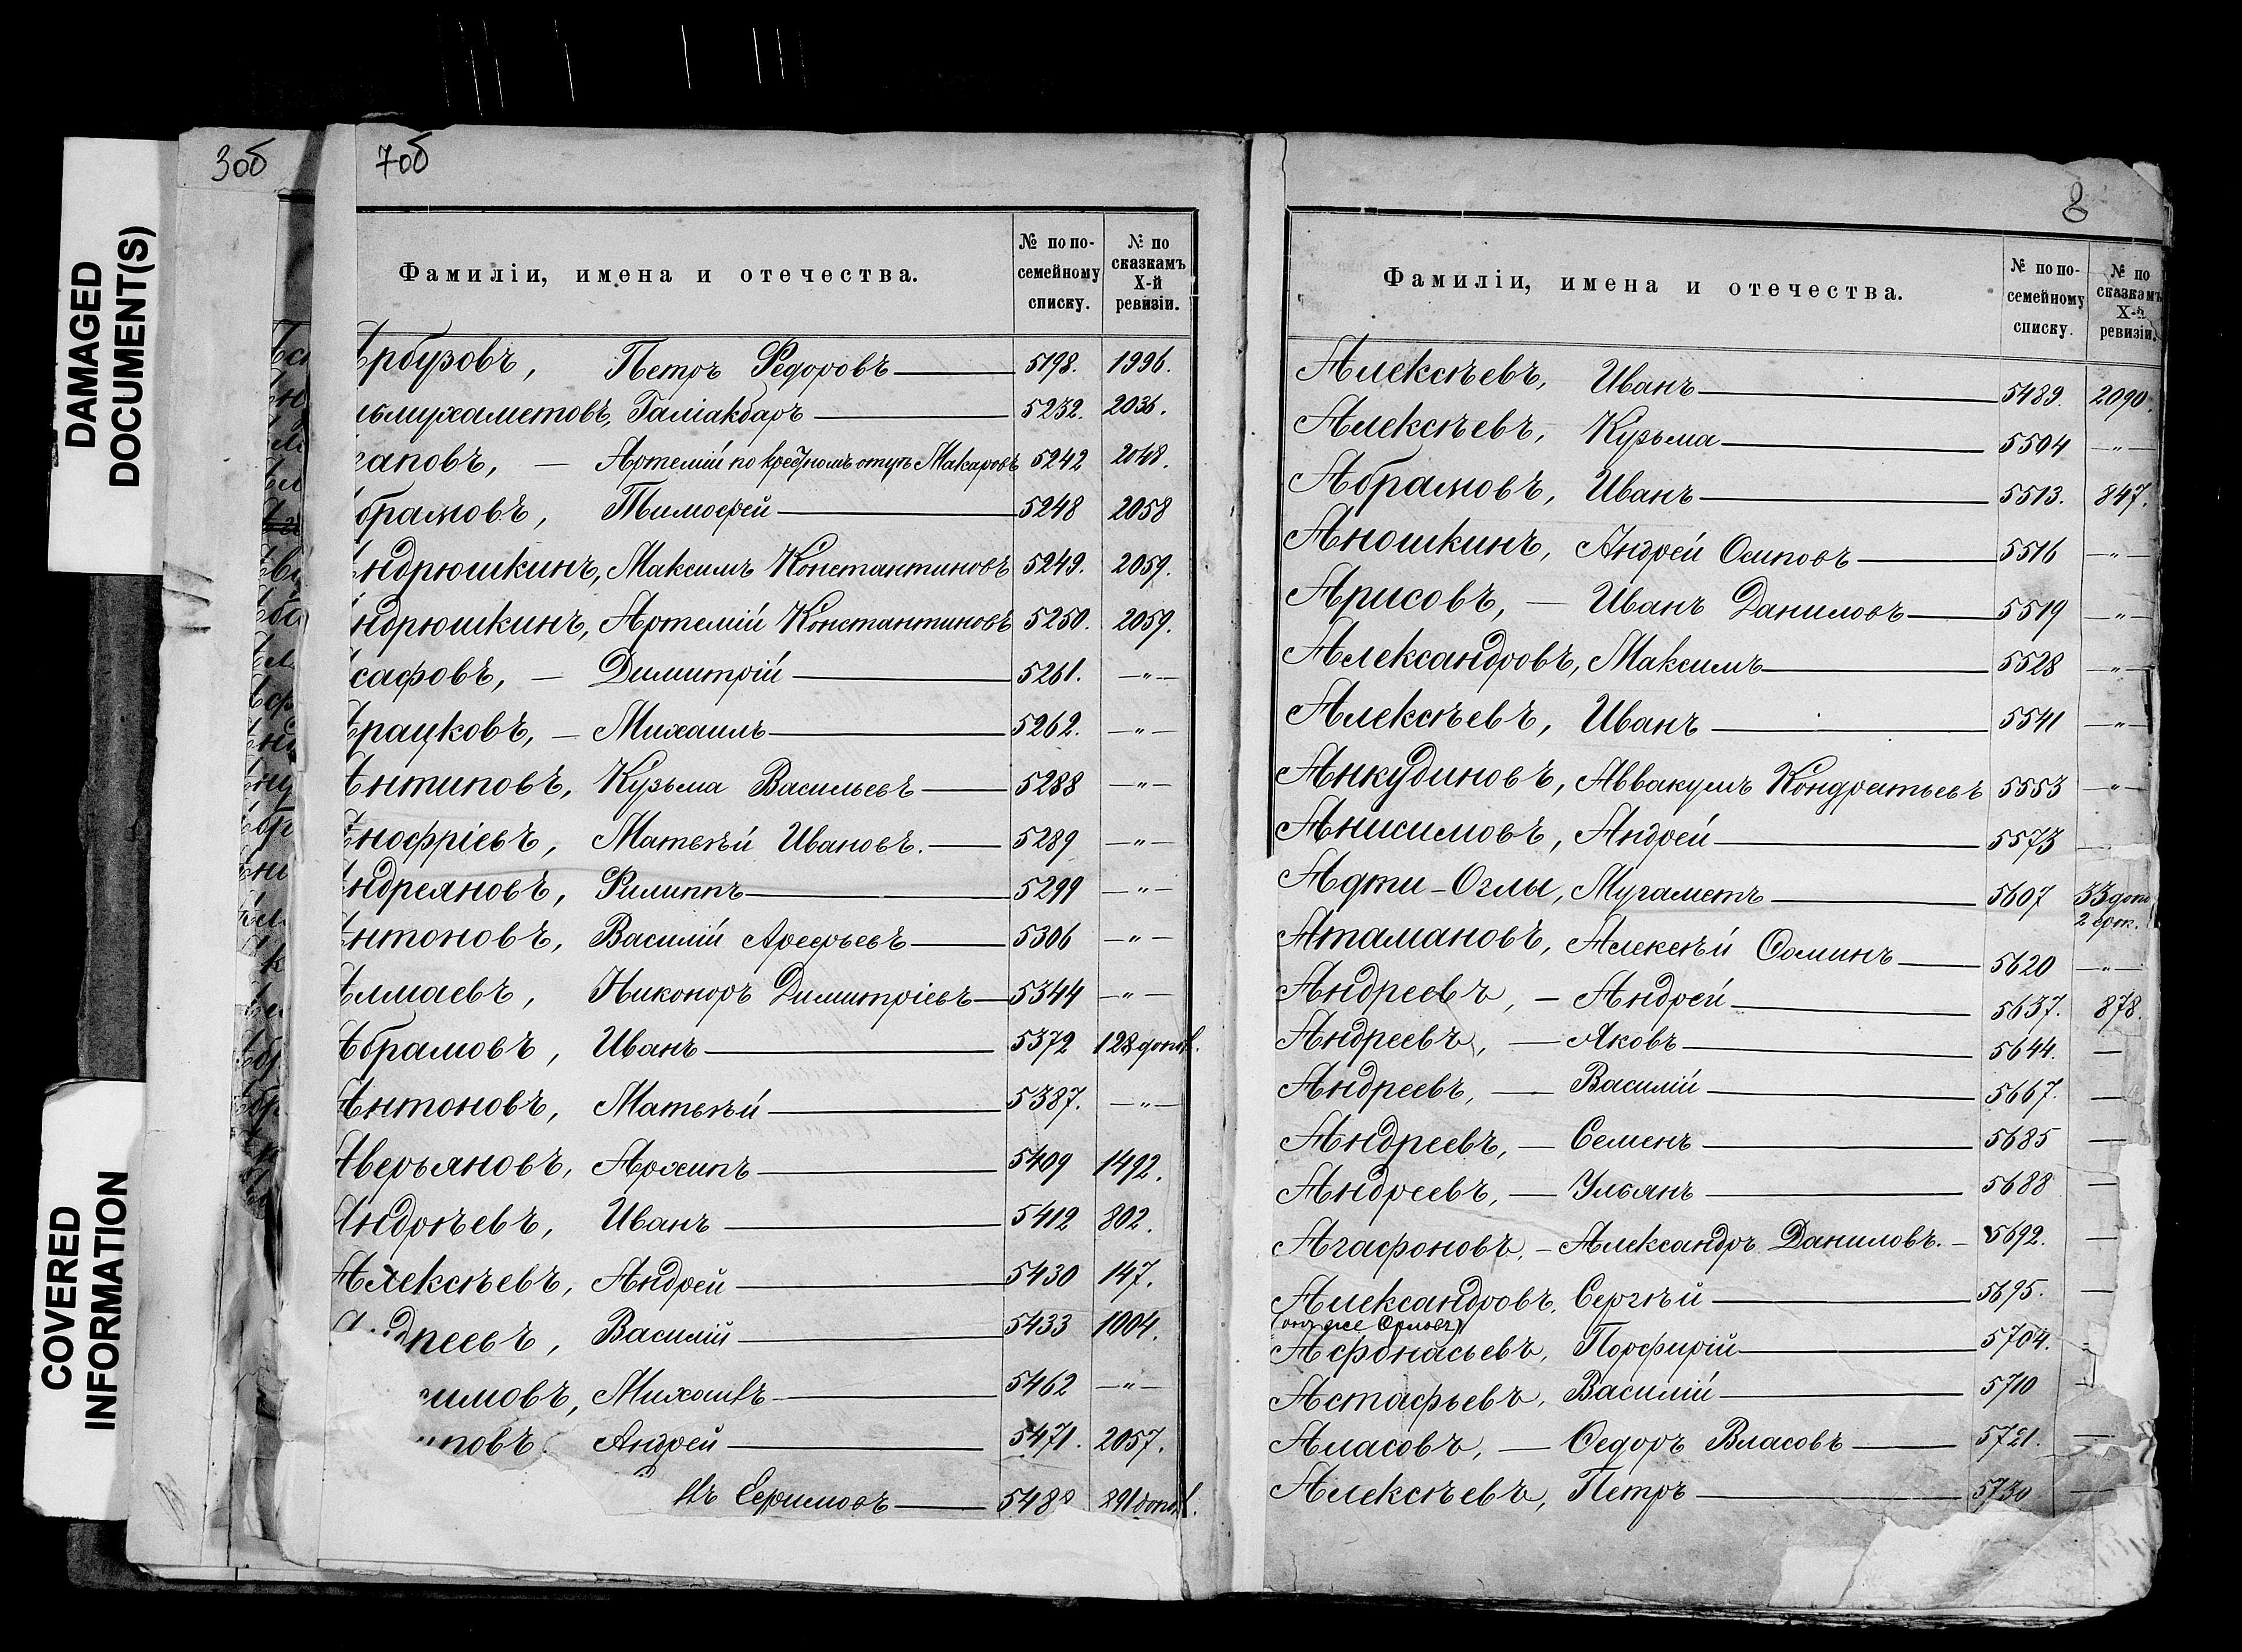 DAMAGED
DOCUMENT(S)
COVERED
INFORMATION
3об
7об
Фамиліи, имена и отечества. № по посемейному списку. № по сказкамъ X-й ревизіи.
Арбузовъ, Петръ Ѳедоровъ 5198. 1996.
льмухаметовъ, Галіакбаръ 5232. 2036.
саповъ, — Артемій по крестному отцу Макаровъ 5242 2048.
Абрамовъ, Тимоѳей 5248 2058
Андрюшкинъ, Максимъ Константиновъ 5249. 2059.
Андрюшкинъ, Артемій Константиновъ 5250. 2059.
сафовъ, — Димитрій 5261. —"—
Арацковъ, — Михаилъ 5262. —"—
Антиповъ, Кузьма Васильевъ 5288 —"—
Анофріевъ, Матвѣй Ивановъ. 5289 —"—
Андреяновъ, Филиппъ 5299 —"—
Антоновъ, Василій Арефьевъ 5306 —"—
Алмаевъ, Никоноръ Димитріевъ 5344 —"—
Абрамовъ, Иванъ 5372 128 допол.
Антоновъ, Матвѣй 5387. —"—
Аверьяновъ, Архипъ 5409 1492.
Андрѣевъ, Иванъ 5412 802.
Алексѣевъ, Андрей 5430 147.
Андреевъ, Василій 5433 1004.
имовъ, Михаилъ 5462 —"—
иповъ Андрей 5471. 2057.
лъ Ефимовъ 5488 891 допол.
8
Фамиліи, имена и отечества. № по посемейному списку. № по сказкамъ X-й ревизіи.
Алексѣевъ, Иванъ 5489. 2090.
Алексѣевъ, Кузьма 5504 —"—
Абрамовъ, Иванъ 5513. 847.
Аношкинъ, Андрей Осиповъ 5516 —"—
Арисовъ, — Иванъ Даниловъ 5519 —"—
Александровъ, Максимъ 5528 —"—
Алексѣевъ, Иванъ 5541 —"—
Анкудиновъ, Аввакумъ Кондратьевъ 5553 —"—
Анисимовъ, Андрей 5573 —
Адти-Оглы, Мугаметъ 5607 33 допо
Атамановъ, Алексѣй Ѳоминъ 5620 —"—
Андреевъ, — Андрей 5637. 878.
Андреевъ, — Яковъ 5644. —
Андреевъ, — Василій 5667. —
Андреевъ, — Семенъ 5685 —
Андреевъ, — Ульянъ 5688 —
Агафоновъ, — Александръ Даниловъ. — 5692. —
Александровъ, Сергѣй 5695. —
(онъ же Орловъ)
Афонасьевъ, Порфирій 5704.
Астафьевъ, Василій 5710
Аласовъ, — Ѳедоръ Власовъ 5721. —
Алексѣевъ, Петръ 5730 —